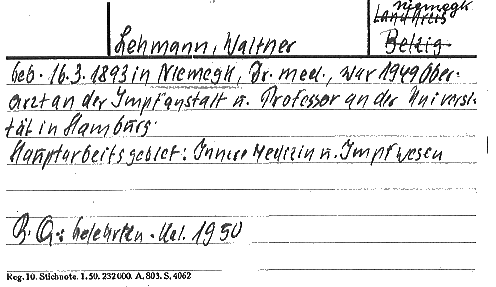 Niemegk
Landkreis
Belzig
Lehmann, Walther
geb. 16.3.1893 in Niemegk, Dr. med., war 1949 Ober-
arzt an der Impfanstalt u. Professor an der Universi-
tät in Hamburg.
Hauptarbeitsgebiet: Innere Medizin u. Impfwesen
B. Q.: Gelehrten-Kal. 1950
Reg. 10. Stichnote. 1. 50. 232000. A. 803. S. 4062